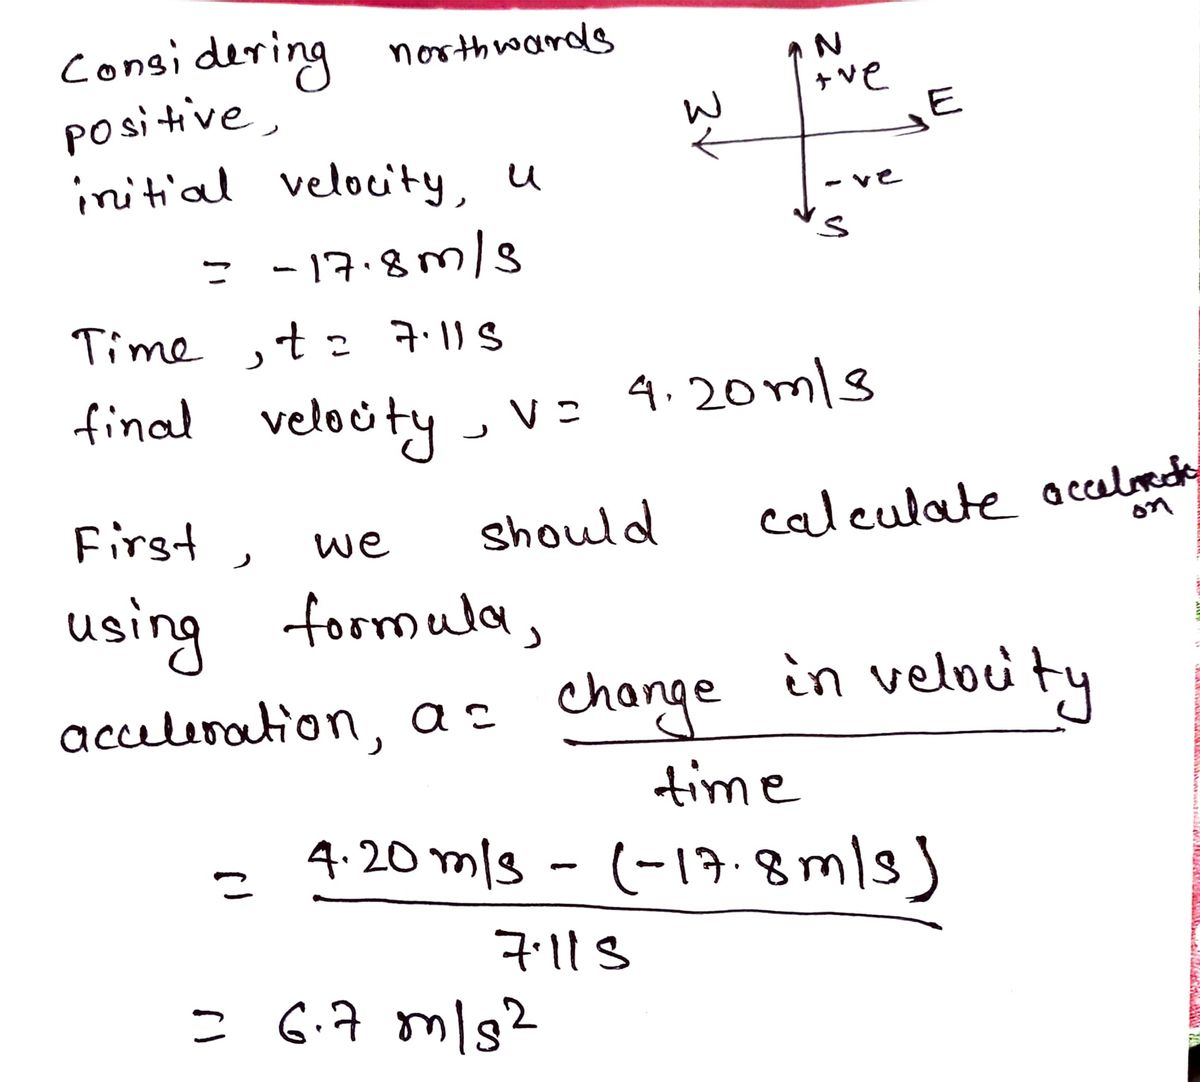 Considering northwards
positive,
initial velocity, u
= -17.8 m/s
Time, t = 7.11 s
final velocity, v = 4.20 m/s
N
+ve
W
E
-ve
S
First, we should calculate accelerati
on
using formula,
acceleration, a = change in velocity
time
= 4.20 m/s - (-17.8 m/s)
7.11 s
= 6.7 m/s²